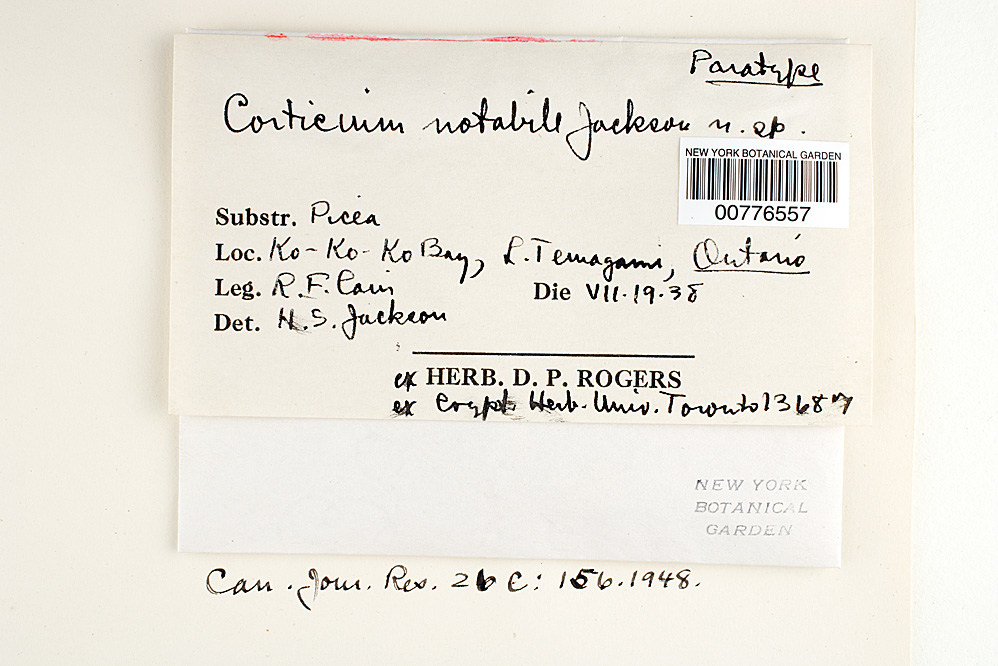 Paratype
Corticium notabile Jackson n. sp.
NEW YORK BOTANICAL GARDEN
00776557
Substr. Picea
Loc. Ko-Ko-Ko Bay, L. Temagami, Ontario
Leg. R. F. Cain Die VII.19.38
Det. H. S. Jackson
ex HERB. D. P. ROGERS
ex Crypt. Herb. Univ. Toronto 13687
NEW YORK
BOTANICAL
GARDEN
Can. Jour. Res. 26 C: 156. 1948.